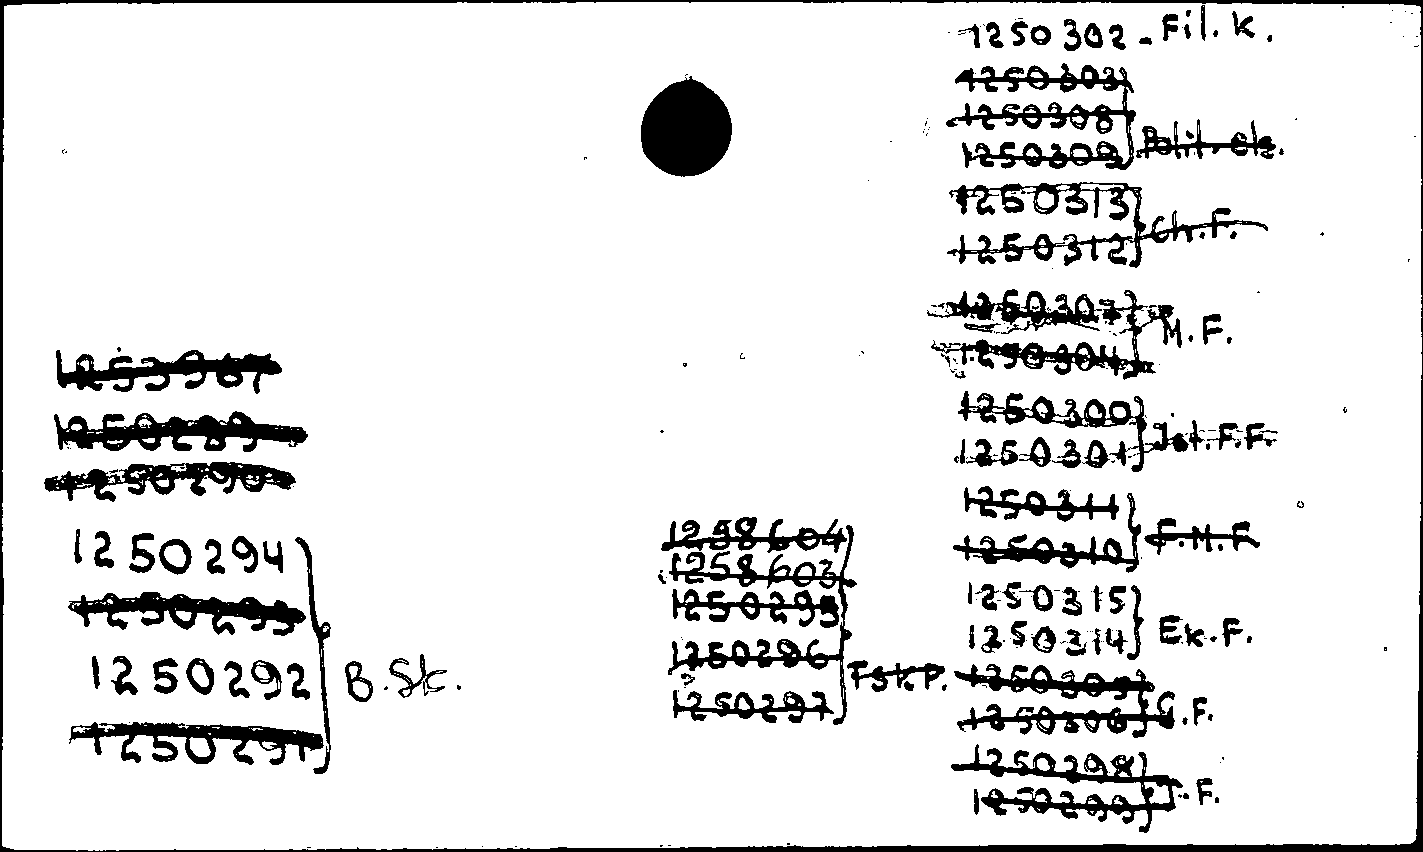 1253967
1250289
1250290
1250294
1250293
1250292
1250291
B.Sk.
1258604
1258603
1250295
1250296
1250297
F.sk.P.
1250302 - Fil. k.
1250303
1250308
1250309
Polit. els.
1250313
1250312
Ch.F.
1250307
1250304
M.F.
1250300
1250301
Ist.F.F.
1250311
1250310
F.M.F
1250315
1250314
Ek.F.
1250305
1250306
G.F.
1250298
1250299
J.F.